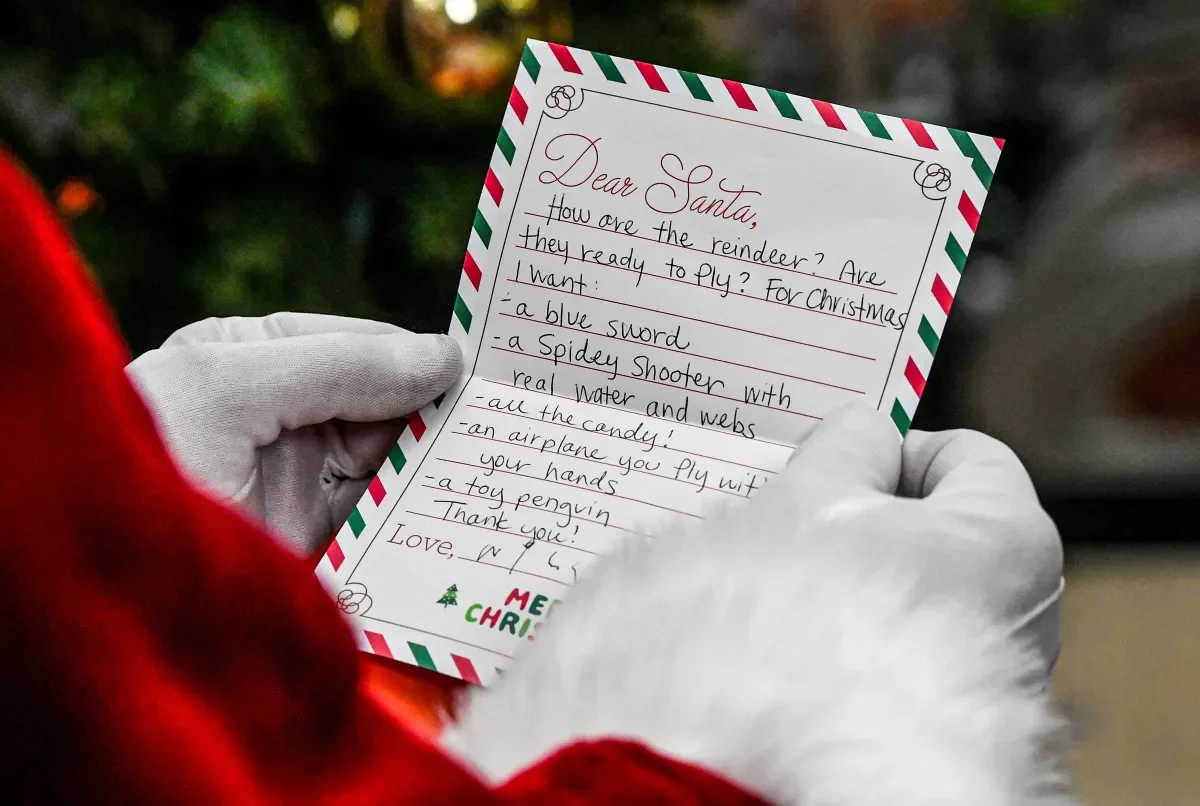 Dear Santa,
How are the reindeer? Are
they ready to fly? For Christmas
I want:
- a blue sword
- a Spidey Shooter with
real water and webs
- all the candy!
- an airplane you fly wit
your hands
- a toy penguin
Thank you!
Love,
MER
CHRIS